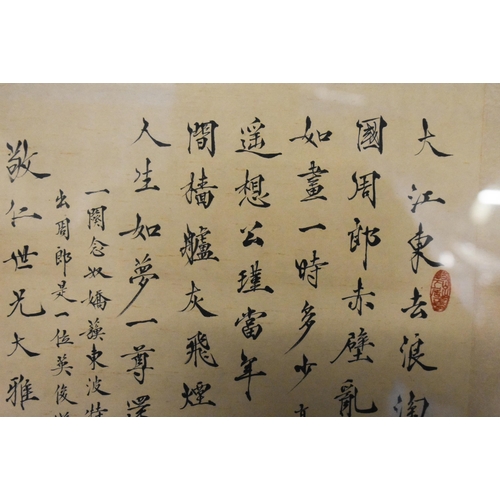 大江東去浪淘
國周郎赤壁亂
如畫一時多少
遥想公瑾當年
間檣艣灰飛煙
人生如夢一尊還
一闋念奴嬌蘇東波特
出周郎是一位英俊
敬仁世兄大雅